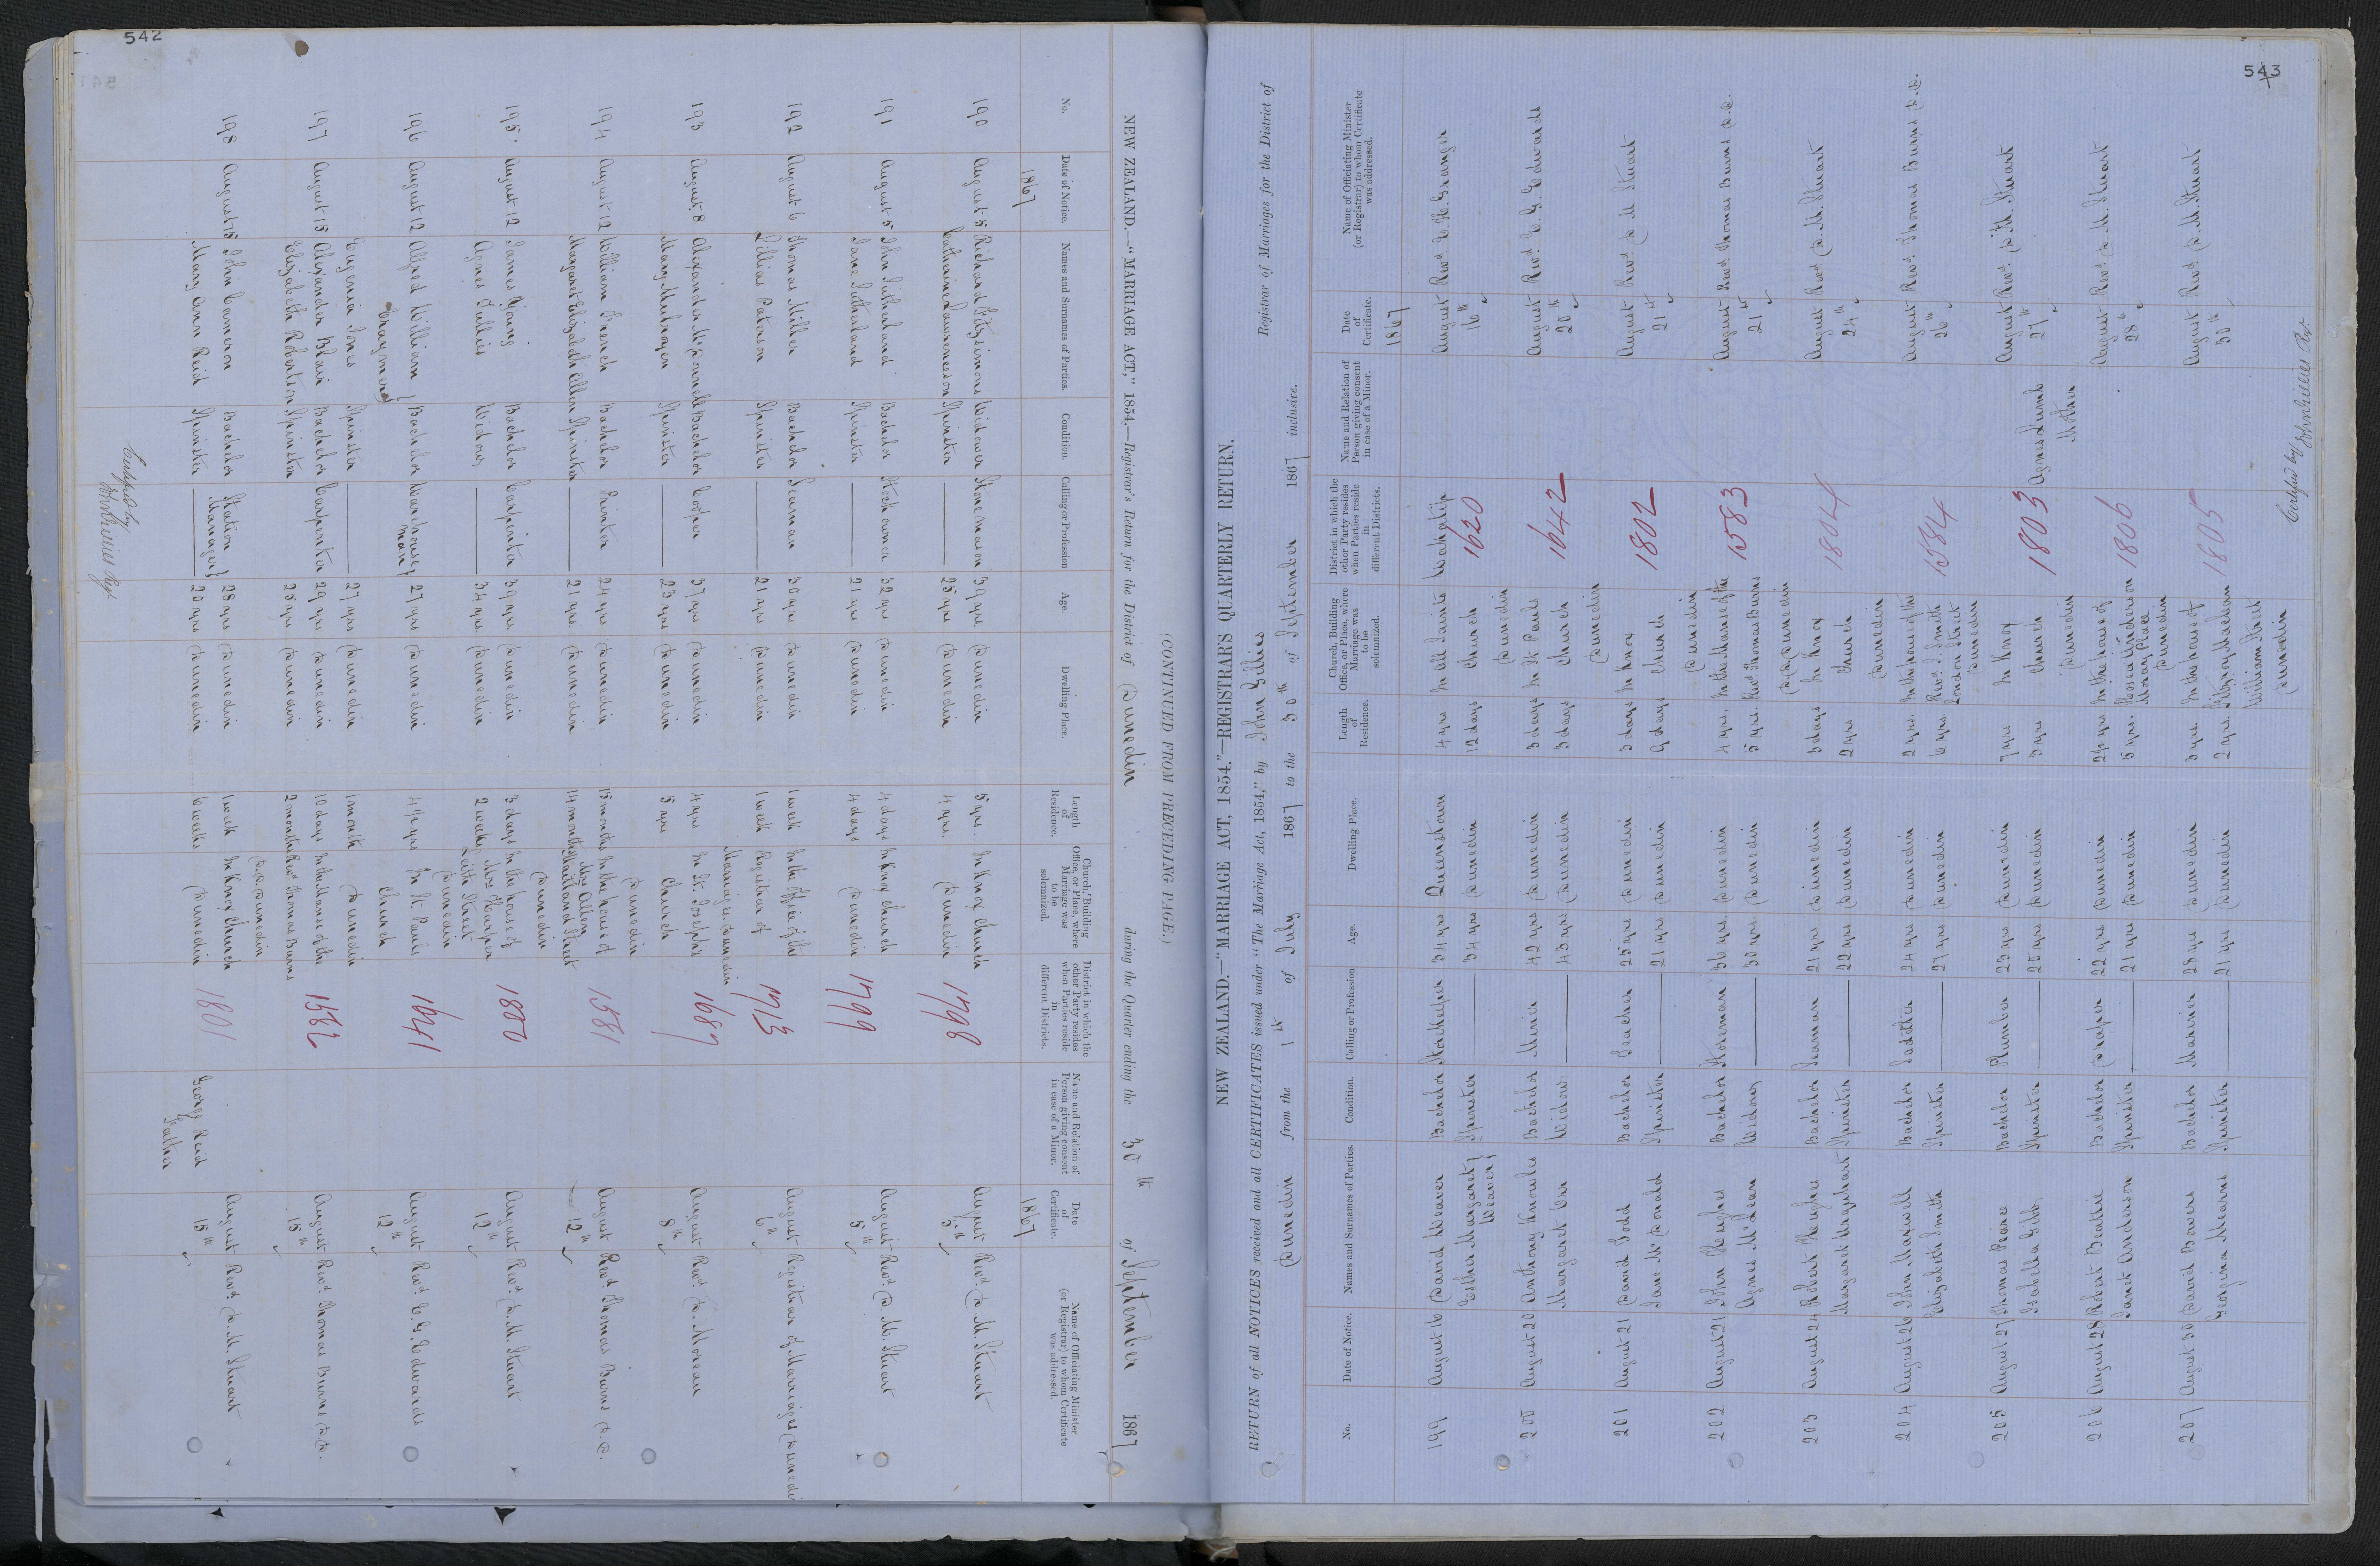 542
NEW ZEALAND.—"MARRIAGE ACT," 1854.—Registrar's Return for the District of Dunedin during the Quarter ending the 30th of September 1867
(CONTINUED FROM PRECEDING PAGE.)
No. Date of Notice. Names and Surnames of Parties. Condition. Calling or Profession Age. Dwelling Place. Length of Residence. Church, Building Office, or Place, where Marriage was to be solemnized. District in which the other Party resides when Parties reside in different Districts. Name and Relation of Person giving consent in case of a Minor. Date of Certificate. Name of Officiating Minister (or Registrar) to whom Certificate was addressed.
1867 1867
190 August 5 Richard Fitzsimons Widower Stone mason 39 yrs Dunedin 5 yrs. In Knox Church 1798 August Revd. D. M. Stuart
Catherine Lawrenceson Spinster 25 yrs Dunedin 4 yrs. Dunedin 5th
191 August 5 John Sutherland Bachelor Stock owner 32 yrs Dunedin 4 days In Knox Church 1799 August Revd. D. M. Stuart
Jane Sutherland Spinster —— 21 yrs Dunedin 4 days Dunedin 5th
192 August 6 Thomas Miller Bachelor Seaman 30 yrs Dunedin 1 week In the Office of the 1713 August Registrar of Marriages Dunedin
Lillias Paterson Spinster —— 21 yrs Dunedin 1 week Registrar of 6th
Marriages. Dunedin
193 August 8 Alexander McDonnell Bachelor Cooper 37 yrs Dunedin 4 yrs In St. Joseph's 1687 August Revd. D. Moreau
Mary Mulrooyen Spinster —— 23 yrs Dunedin 5 yrs Church 8th
Dunedin
194 August 12 William French Bachelor Printer 24 yrs Dunedin 15 months In the house of 1581 August Revd. Thomas Burns D.D.
Margaret Elizabeth Allen Spinster —— 21 yrs. Dunedin 14 months Mrs Allen Maitland Street 12th
Dunedin
195 August 12 James Young Bachelor Carpenter 39 yrs Dunedin 3 days In the house of 1800 August Revd. D. M. Stuart
Agnes Gillies Widow —— 34 yrs Dunedin 2 weeks Mrs Harper 12th
Leith Street
Dunedin
196 August 12 Alfred William Bachelor Warehouse 27 yrs Dunedin 4½ yrs In St. Pauls 1641 August Revd. E. G. Edwards
man Church 12th
Eugenia Jones Spinster —— 27 yrs Dunedin 1 month Dunedin
197 August 15 Alexander Blair Bachelor Carpenter 29 yrs Dunedin 10 days In the Manse of the 1582 August Revd. Thomas Burns D.D.
Elizabeth Robertson Spinster 25 yrs Dunedin 2 months Revd. Thomas Burns 15th
D.D. Dunedin
198 August 15 John Cameron Bachelor Station 28 yrs Dunedin 1 week In Knox Church 1801 August Revd. D. M. Stuart
Manager
Mary Ann Reid Spinster —— 20 yrs Dunedin 6 weeks Dunedin George Reid 15th
Father
Certified by
John Gillies Regr.
543
NEW ZEALAND.—"MARRIAGE ACT, 1854."—REGISTRAR'S QUARTERLY RETURN.
RETURN of all NOTICES received and all CERTIFICATES issued under "The Marriage Act, 1854," by John Gillies Registrar of Marriages for the District of
Dunedin from the 1st of July 1867 to the 30th of September 1867 inclusive.
No. Date of Notice. Names and Surnames of Parties. Condition. Calling or Profession Age. Dwelling Place. Length of Residence. Church, Building Office, or Place, where Marriage was to be solemnized. District in which the other Party resides when Parties reside in different Districts. Name and Relation of Person giving consent in case of a Minor. Date of Certificate. Name of Officiating Minister (or Registrar) to whom Certificate was addressed.
1867
199 August 16 David Weaver Bachelor Storekeeper 34 yrs Queenstown 4 yrs In All Saints Wakatip August Revd. E. H. Granger
Esther Margaret Spinster —— 34 yrs Dunedin 12 days Church 1620 16th
Weaver Dunedin
200 August 20 Anthony Knowles Bachelor Miner 42 yrs Dunedin 3 days In St. Pauls 1642 August Revd. E. G. Edwards
Margaret Orr Widow —— 43 yrs Dunedin 3 days Church 20th
Dunedin
201 August 21 David Todd Bachelor Teacher 25 yrs Dunedin 3 days In Knox 1802 August Revd. D. M. Stuart
Jane McDonald Spinster —— 21 yrs Dunedin 9 days Church 21st
Dunedin
202 August 21 John Hughes Bachelor Storeman 36 yrs. Dunedin 4 yrs. In the Manse of the 1583 August Revd. Thomas Burns D.D.
Agnes McLean Widow —— 30 yrs. Dunedin 5 yrs. Revd. Thomas Burns 21st
D.D. Dunedin
203 August 24 Robert Hughes Bachelor Seaman 21 yrs Dunedin 3 days In Knox 1804 August Revd. D. M. Stuart
Margaret Urquhart Spinster —— 22 yrs Dunedin 2 yrs Church 24th
Dunedin
204 August 26 John Maxwell Bachelor Saddler 24 yrs Dunedin 2 yrs. In the house of the 1584 August Revd. Thomas Burns D.D.
Elizabeth Smith Spinster —— 27 yrs Dunedin 6 yrs. Revd. J. Smith 26th
London Street
Dunedin
205 August 27 Thomas Peires Bachelor Plumber 23 yrs Dunedin 7 yrs In Knox 1803 Agnes Lumb August Revd. D. M. Stuart
Isabella Gibb Spinster —— 20 yrs Dunedin 3 yrs Church Mother 27th
Dunedin
206 August 28 Robert Beattie Bachelor Draper 22 yrs Dunedin 2½ yrs In the house of 1806 August Revd. D. M. Stuart
Janet Anderson Spinster —— 21 yrs Dunedin 5 yrs. Anderson 28th
Moray Place
Dunedin
207 August 30 David Bower Bachelor Mariner 28 yrs Dunedin 3 yrs. In the house of 1805 August Revd. D. M. Stuart
Georgina Mearns Spinster —— 21 yrs Dunedin 2 yrs. Fitzroy MacLean 30th
William Street
Dunedin
Certified by
John Gillies Regr.